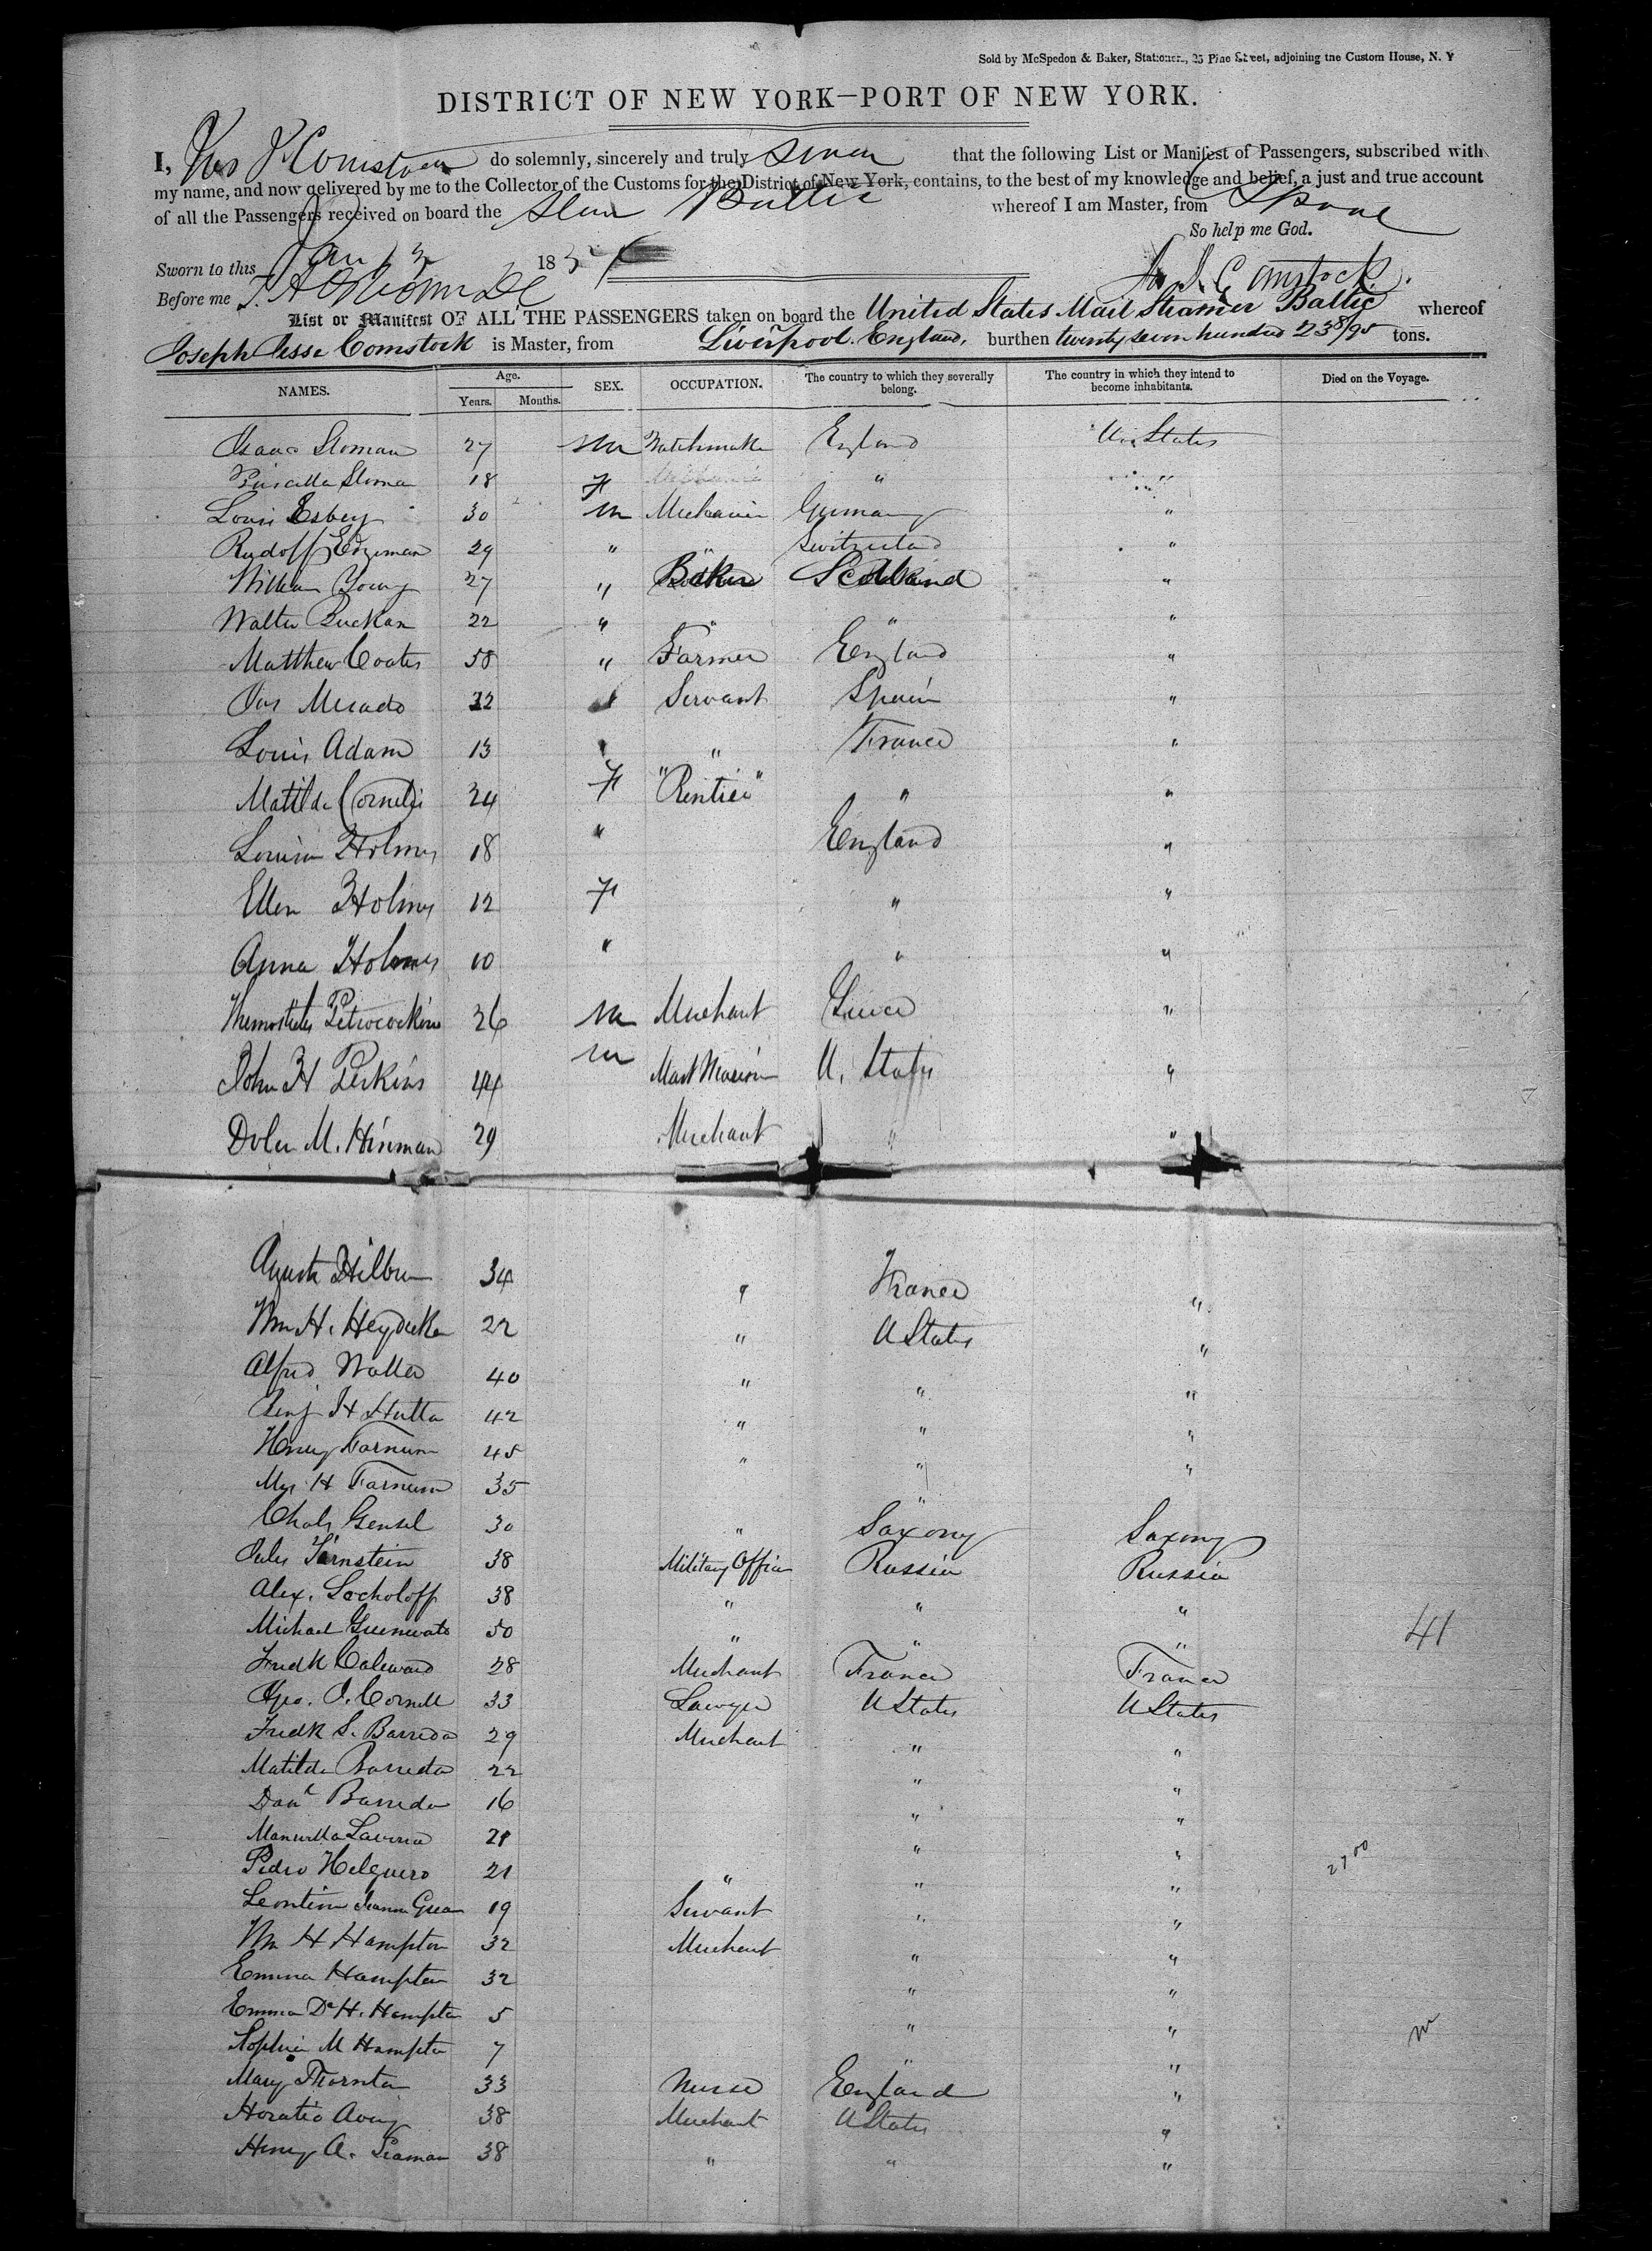 Sold by McSpedon & Baker, Stationers, 25 Pine Street, adjoining the Custom House, N. Y
DISTRICT OF NEW YORK—PORT OF NEW YORK.
I, Jos J Comstock do solemnly, sincerely and truly swear that the following List or Manifest of Passengers, subscribed with
my name, and now delivered by me to the Collector of the Customs for the District of New York, contains, to the best of my knowledge and belief, a just and true account
of all the Passengers received on board the Steamer Baltic whereof I am Master, from Lpool
So help me God.
Sworn to this Jan 185
Before me Jos. J. Comstock
List or Manifest OF ALL THE PASSENGERS taken on board the United States Mail Steamer Baltic whereof
Joseph Jesse Comstock is Master, from Liverpool. England, burthen twenty seven hundred 23 38/95 tons.
NAMES. Age. SEX. OCCUPATION. The country to which they severally belong. The country in which they intend to become inhabitants. Died on the Voyage.
Years. Months.
Isaac Sloman 27 m Watchmaker England U. States
Priscilla Sloman 18 f " "
Louis Esbey 30 m Mechanic Germany "
Rudolff 29 " " Switzerland "
William Young 27 " Baker Scotland "
Walter Buckan 22 " " " "
Matthew Coates 58 " Farmer England "
Jas Mercado 32 Servant Spain "
Louis Adam 13 " France "
Matilda Cornelis 24 f "Rentier" " "
Louisa Holmes 18 " England "
Ellen Holmes 12 f " "
Anna Holmes 10 " " "
Themosticles Petrocockino 26 m Merchant Greece "
John H Perkins 44 m Mast Mariner U. States "
M. Hinman 29 Merchant " "
34 " France "
Wm H. 22 " U States "
Alfred Waller 40 " " "
Benj H Hutton 42 " " "
Henry Farnum 45 " " "
Mrs H Farnum 35 "
Chals Gensel 30 " Saxony Saxony
Jules 38 Military Officer Russia Russia
Alex. Socholoff 38 " " "
Michael 50 " " "
Fredk 28 Merchant France France
Geo. J. Cornell 33 Lawyer U States U States
Fredk S. Barreda 29 Merchant " "
Matilda Barreda 22 " "
Danl Barreda 16 " "
21 " "
Pedro Helguero 21 " " "
Leontine 19 Servant " "
Wm H Hampton 32 Merchant " "
Emma Hampton 32 " "
Emma De H. Hampton 5 " "
Sophia M Hampton 7 " "
Mary Thornton 33 Nurse England "
Horatio Avery 38 Merchant U States "
Henry A. Seaman 38 " " "
41
2700